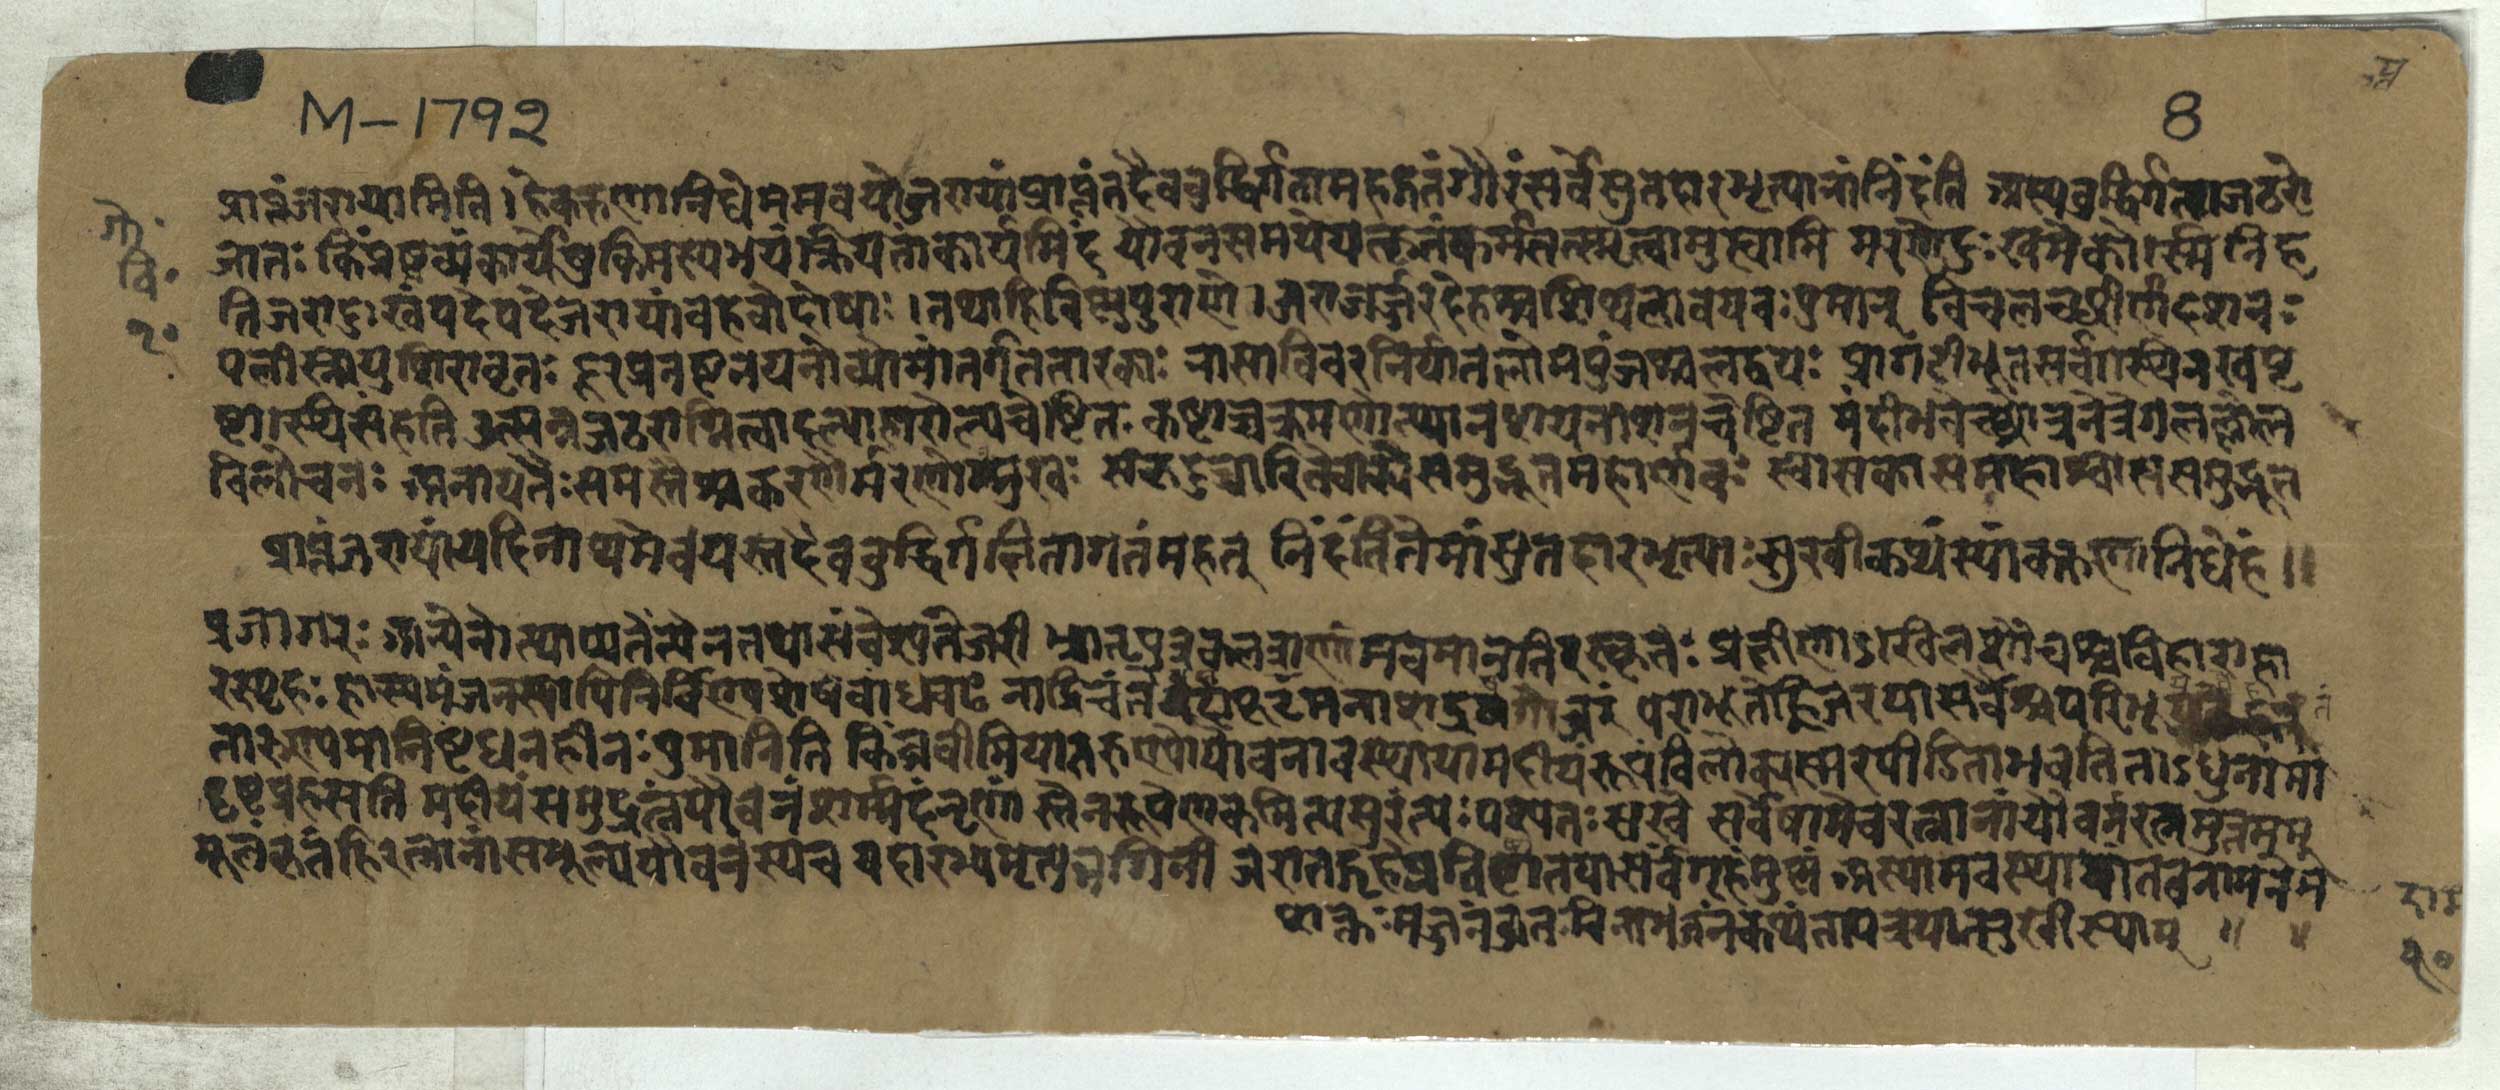 M-1792
8
गो.
वि.
१०
प्राप्तंजरायामिति। हेकरुणानिधेममवयोजरायांप्राप्तंतदैवबुद्धिर्गतामहत्गतंगौरंसर्वेसुतदारभृत्यानांनिंदंति अस्यबुद्धिर्गत्वाजठरो
जातः किंप्रष्टव्यंकार्येषुकिमस्यभयंक्रियतांकार्यमिदं यौवनसमयेयत्कृतंकर्मतत्स्मृत्वामुस्वामि मरणेदुःखमेकोस्मिनिह
तिजरादुःखंपदेपदेजरायांबहवोदोषाः। तथाहिविष्णुपुराणे। जराजर्जरदेहश्चशिथिलावयवःपुमान् विचलच्छीर्णदशनः
वलीस्नायुशिरावृतः दूरप्रनष्टनयनोव्योमांतर्गततारकः नासाविवरनिर्यातलोमपुंजश्चलद्वपुः प्रागटीभूतसर्वास्थिनखपृ
ष्टास्थिसंहति उत्सन्नजठराग्नित्वादल्पाहारोल्पचेष्टितः कष्टाच्चंक्रमणोत्थानशयनाशनचेष्टित मंदीभवच्छ्रोत्रनेत्रगलल्लोल
विलोचनः अनायतैःसमस्तैश्चकरणैर्मरणोन्मुखः सकृदुच्चारितेवाक्येसमुद्भूतमहार्णवः स्वासकासमहाश्वाससमुद्भूत
प्राप्तंजरायांयदिनाथमेवयस्तदैवबुद्धिर्गलितागतंमहत् निंदंतितेमांसुतदारभृत्याःसुखीकथंस्यांकरुणानिधेहं॥
प्रजागरः अन्येनोत्थाप्यतेन्येनतथासंवेश्यतेजरी भ्रात्यपुत्रकलत्राणांमवमानतिरस्कृतः प्रक्षीणाऽखिलशौचश्चविहाराहा
रस्पृहः हास्यमंजनस्यापिनिर्विणाशेषबांधवः पराभूतोहिजरयासर्वैश्चपरिभू
तोरुणमानिष्टधनहीनःपुमानिति किंब्रवीमियातरुणीयौवनावस्थायांमदीयंरूपंविलोक्यस्मरपीडिताभवतितोऽधुनामां
दृष्ट्वप्रहसति मदीयंसमुद्रत्नंयौवनंशर्म्मदंनृणां पश्यतःसखे सर्वेषामेवरत्नानांयौवनंरत्नमुत्तममु
मूलंकृतंहिरत्नानांसमूल्ययौवनस्यच यदारभ्यमृत्युभगिनी जरातद्गृहेप्रविष्टातयासर्वगृहंमुष्टं अस्यामवस्थायांतवनामनेम
शक्तःभजनंव्रत विनाभजनंकथंतापत्रयात्सुखीस्याम् ॥
१०